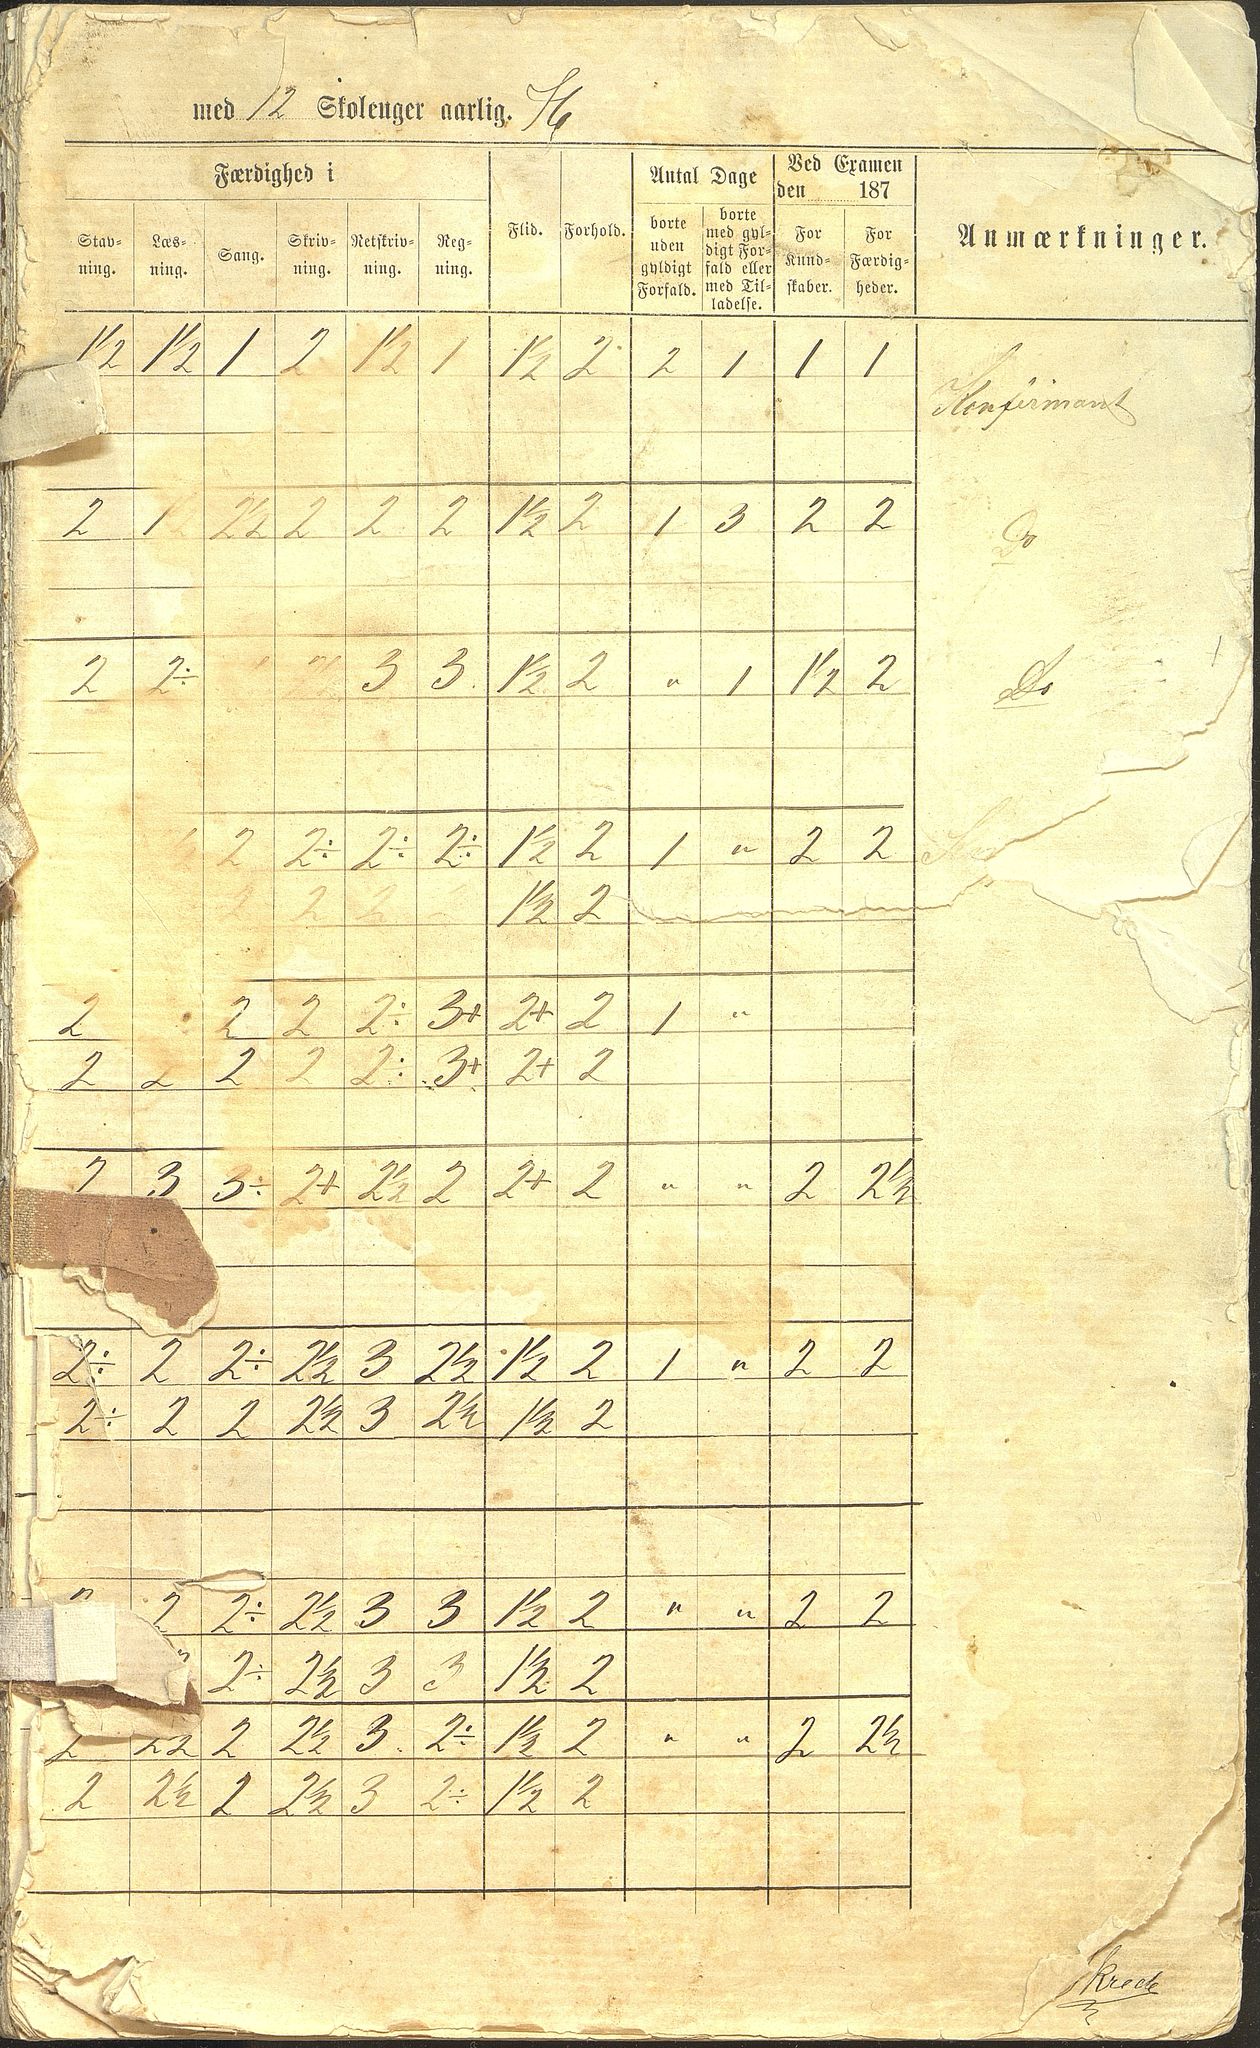 med 12 Skoleuger aarlig.
Færdighed i
Flid.
Forhold.
Antal Dage
Ved Examen den 187
Anmærkninger.
Stavning.
Læsning.
Sang.
Skrivning.
Retskrivning.
Regning.
borte uden gyldigt Forfald.
borte med gyldigt Forfald eller med Tilladelse.
For Kundskaber.
For Færdigheder.
1½ 1½ 1 2 1½ 1 1½ 2 2 1 1 1
Konfirmant
2 1 2½ 2 2 2 1½ 2 1 3 2 2 Do
2 2÷ 3 3 1½ 2 " 1 1½ 2 Do
2 2÷ 2÷ 2÷ 1½ 2 1 " 2 2
2 2 2 1½ 2
2 2 2 2÷ 3+ 2+ 2 1 "
2 2 2 2 2÷ 3+ 2+ 2
2 3 3÷ 2+ 2½ 2 2+ 2 " " 2 2½
2÷ 2 2÷ 2½ 3 2½ 1½ 2 1 " 2 2
2÷ 2 2 2½ 3 2½ 1½ 2
2 2÷ 2½ 3 3 1½ 2 " " 2 2
2÷ 2½ 3 3 1½ 2
2 2½ 3 2÷ 1½ 2 " " 2 2½
2 2½ 2 2½ 3 2÷ 1½ 2